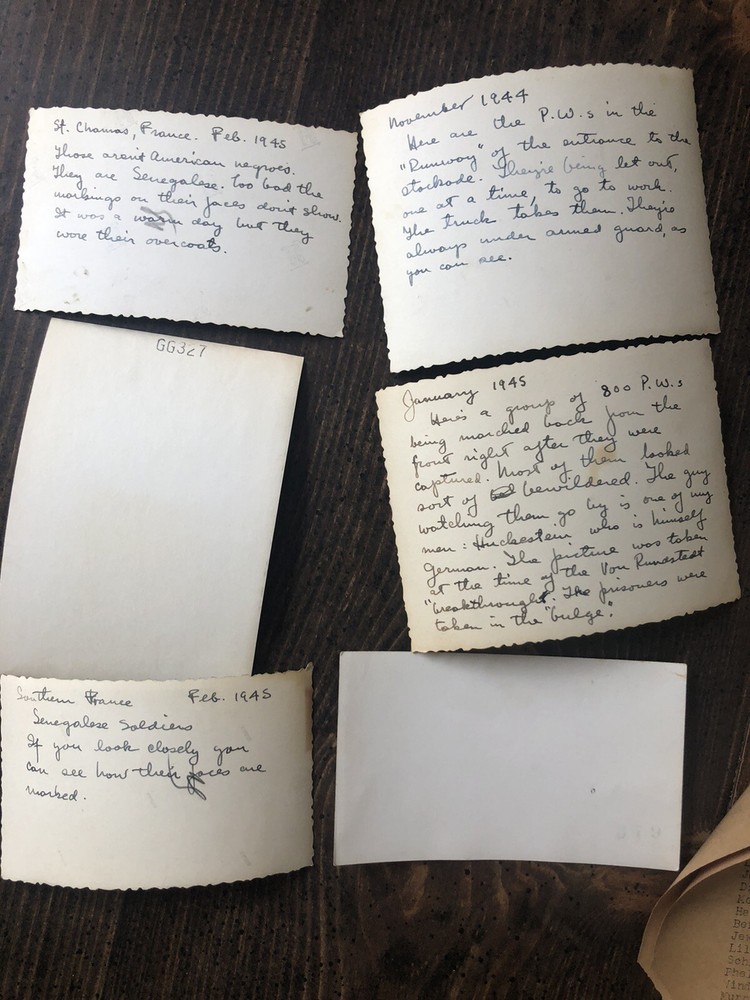 St. Chamas, France. Feb. 1945
Those aren't American negroes.
They are Senegalese. Too bad the
markings on their faces don't show.
It was a warm day but they
wore their overcoats.
November 1944
Here are the P.W.s in the
"Runway" of the entrance to the
stockade. They're being let out,
one at a time, to go to work.
The truck takes them. They're
always under armed guard, as
you can see.
GG327
January 1945
Here's a group of 800 P.W.s
being marched back from the
front right after they were
captured. Most of them looked
sort of bewildered. The guy
watching them go by is one of my
men: Huckestein, who is himself
German. The picture was taken
at the time of the Von Rundstedt
"breakthrough". The prisoners were
taken in the "bulge".
Southern France Feb. 1945
Senegalese Soldiers
If you look closely you
can see how their faces are
marked.